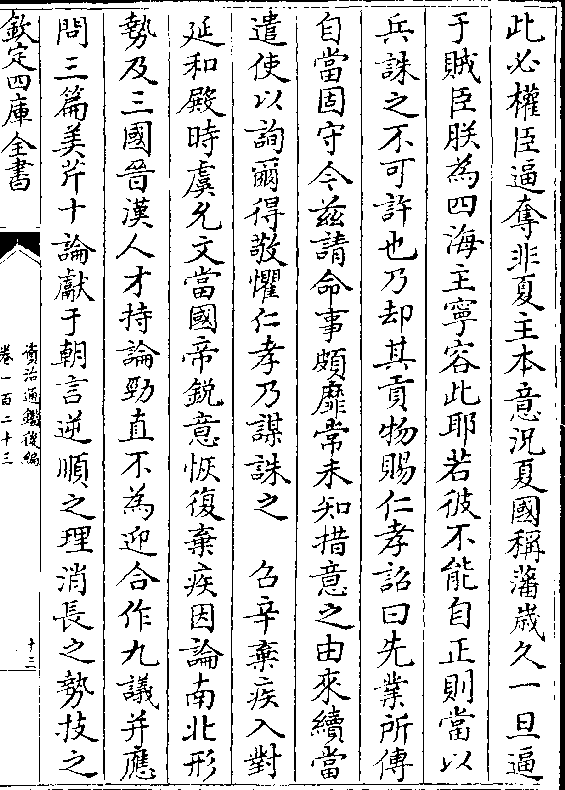 此必權臣逼奪非夏主本意況夏國稱藩歲久一旦逼
于賊臣朕為四海主寧容此耶若彼不能自正則當以
兵誅之不可許也乃却其貢物賜仁孝詔曰先業所傳
自當固守今兹請命事頗靡常未知措意之由來續當
遣使以詢爾得敬懼仁孝乃謀誅之　召辛棄疾入對
延和殿時虞允文當國帝鋭意恢復棄疾因論南北形
勢及三國晉漢人才持論勁直不為迎合作九議并應
問三篇美芹十論獻于朝言逆順之理消長之勢技之
欽定四庫全書
資治通鑑後編
卷一百二十三
十三